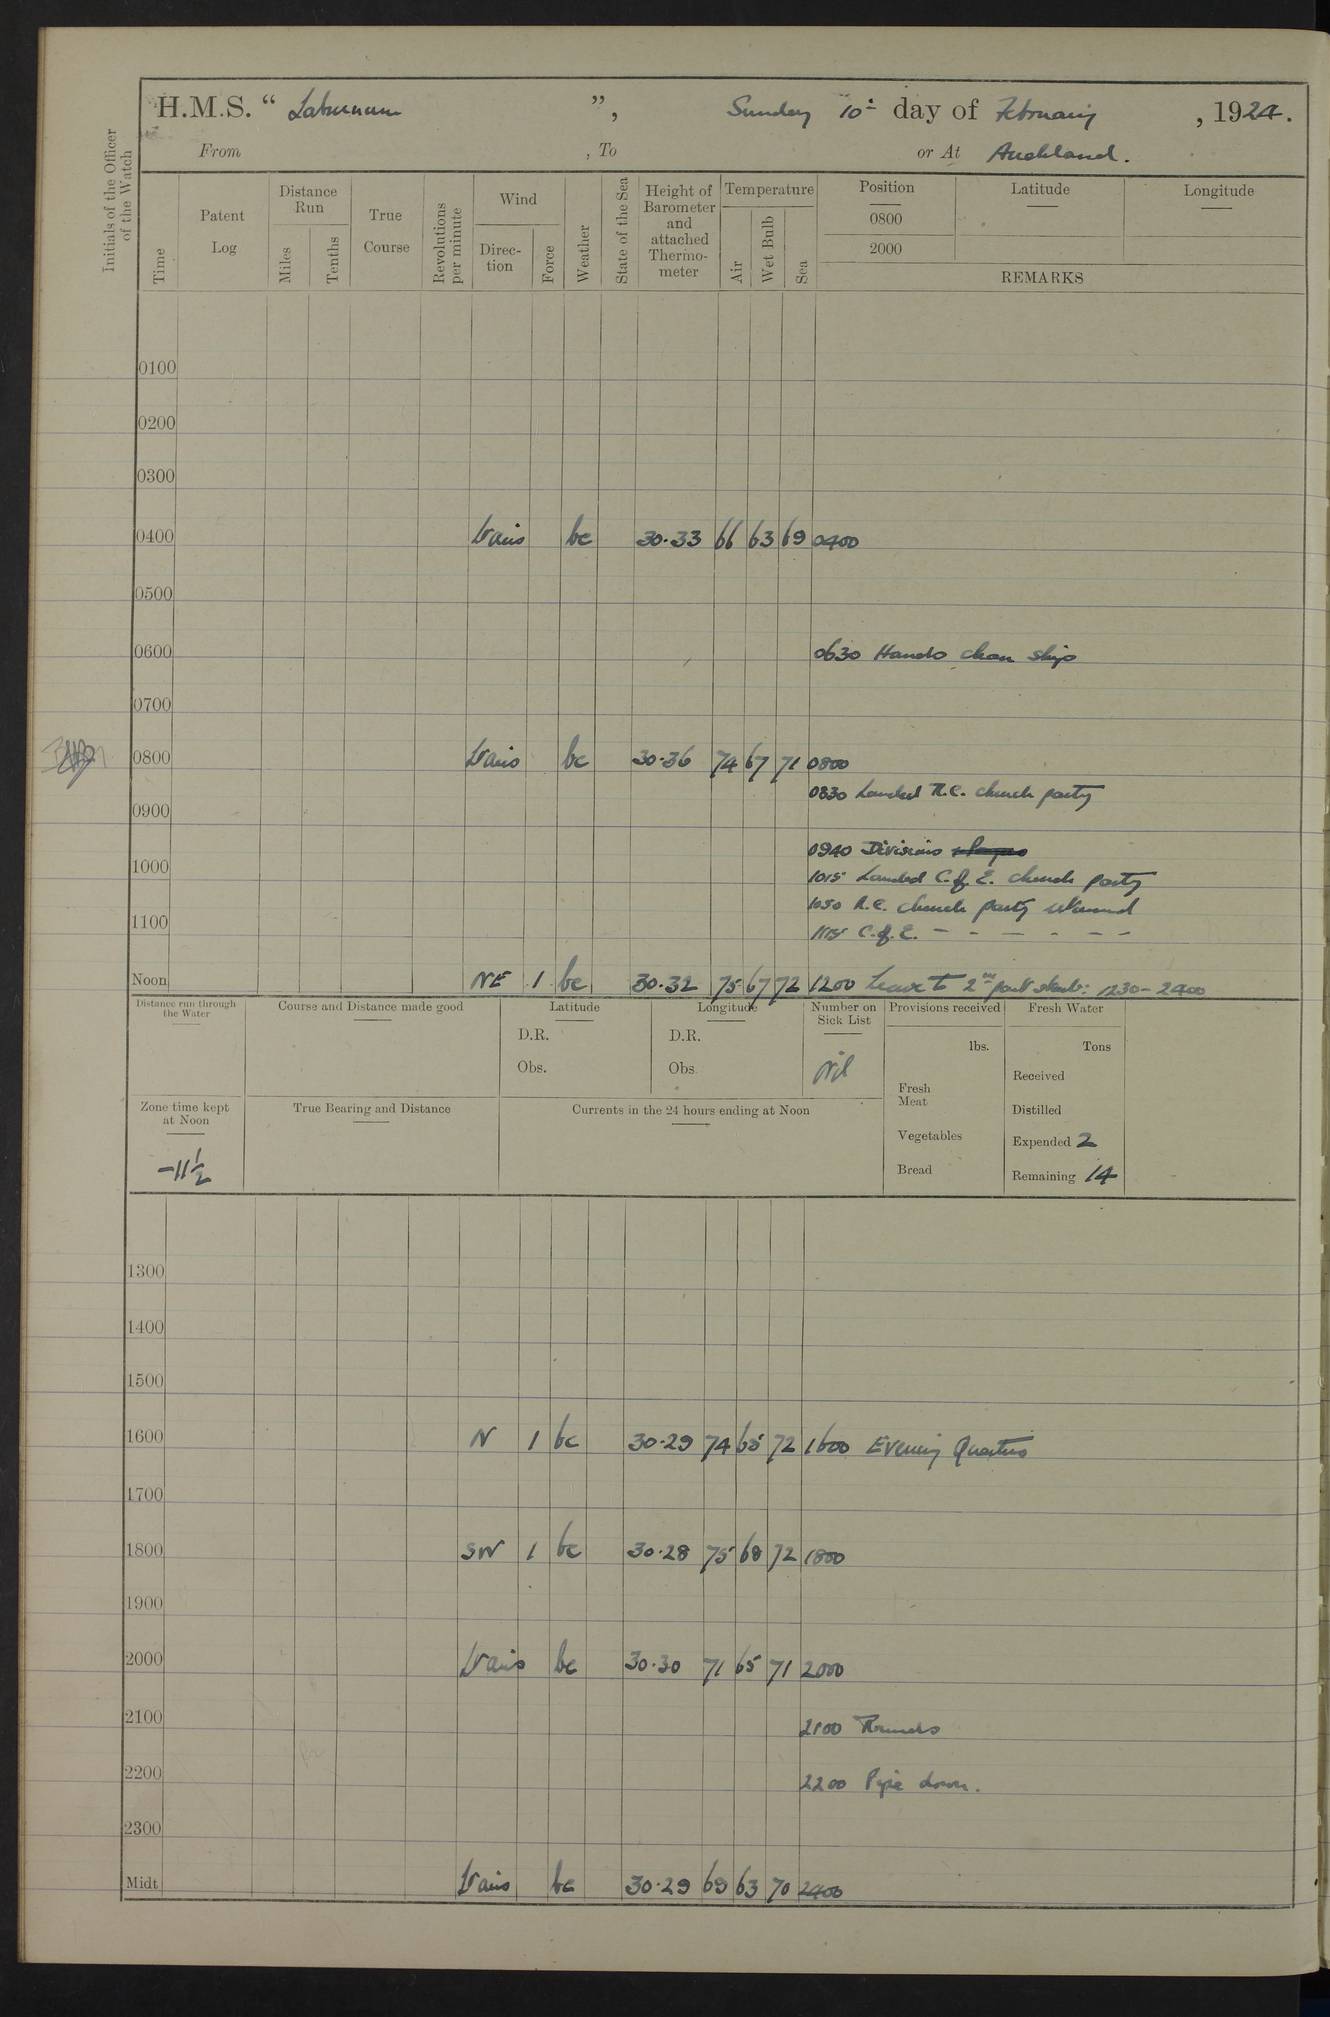 H.M.S. “ Laburnum ”, Sunday 10th day of February , 1924.
From , To or At Auckland.
Initials of the Officer of the Watch
Time
Patent Log
Distance Run
Miles
Tenths
True Course
Revolutions per minute
Wind
Direc-tion
Force
Weather
State of the Sea
Height of Barometer and attached Thermo-meter
Temperature
Air
Wet Bulb
Sea
Position Latitude Longitude
0800
2000
REMARKS
0100
0200
0300
0400 Vars bc 30.33 66 63 69 0400
0500
0600 0630 Hands clean ship
0700
0800 Vars bc 30.36 74 67 71 0800
0830 Landed R.C. church party
0900
0940 Divisions
1000 1015 Landed C. of E. church party
1050 R.C. church party returned
1100 1115 C. of E. – – – – – –
Noon NE 1 bc 30.32 75 67 72 1200 Leave to 2nd part starb: 1230 – 2400
Distance run through the Water
Course and Distance made good
Latitude
D.R.
Obs.
Longitude
D.R.
Obs.
Number on Sick List
Nil
Provisions received
lbs.
Fresh Meat
Vegetables
Bread
Fresh Water
Tons
Received
Distilled
Expended 2
Remaining 14
Zone time kept at Noon
-11½
True Bearing and Distance
Currents in the 24 hours ending at Noon
1300
1400
1500
1600 N 1 bc 30.29 74 65 72 1600 Evening Quarters
1700
1800 SW 1 bc 30.28 75 68 72 1800
1900
2000 Vars bc 30.30 71 65 71 2000
2100 2100 Rounds
2200 2200 Pipe down.
2300
Midt Vars bc 30.29 69 63 70 2400